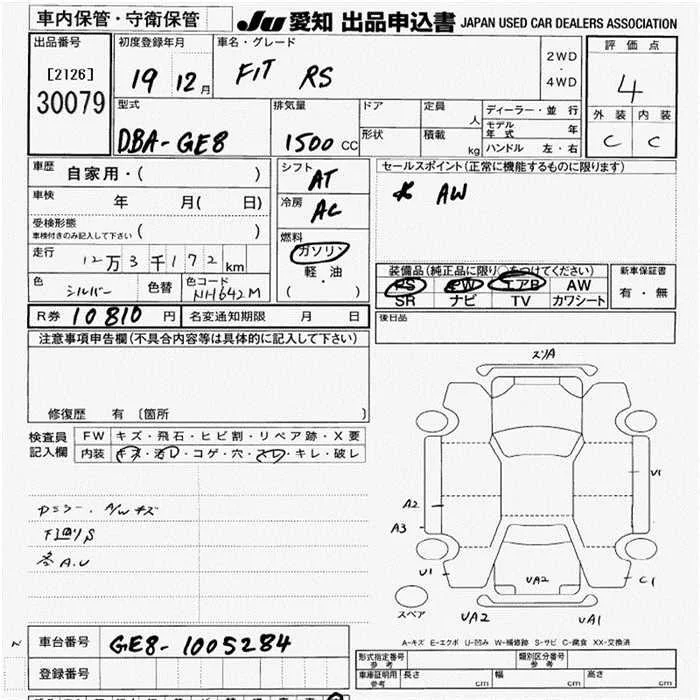 車内保管・守衛保管
JU 愛知 出品申込書 JAPAN USED CAR DEALERS ASSOCIATION
出品番号
[2126]
30079
初度登録年月
19 12月
車名・グレード
FIT RS
2WD
・
4WD
評価点
4
外装 内装
C C
型式
DBA-GE8
排気量
1500 CC
ドア
定員
人
形状
積載
kg
ディーラー・並行
モデル年式 年
ハンドル 左・右
車歴 自家用・( )
車検 年 月( 日)
受検形態
車検付きのみ記入して下さい ( )
走行 12万3千172km
色 シルバー 色替 色コード NH642M
シフト
AT
冷房
AC
燃料
ガソリン
軽・油
( )
セールスポイント(正常に機能するものに限ります)
AW
装備品(純正品に限り○をつけてください)
PS PW エアB AW
SR ナビ TV カワシート
新車保証書
有・無
R券 10810円 名変通知期限 月 日
後日品
注意事項申告欄(不具合内容等は具体的に記入して下さい)
修復歴 有 [箇所 ]
検査員
記入欄
FW キズ・飛石・ヒビ割・リペア跡・X要
内装 キズ・汚レ・コゲ・穴・スレ・キレ・破レ
A/Wキズ
下廻りS
A.U
スリA
U1
A2
A3
U1
UA2
C1
スペア
UA2
UA1
A-キズ E-エクボ U-凹み W-補修跡 S-サビ C-腐食 XX-交換済
車台番号 GE8-1005284
登録番号
形式指定番号
参考
類別区分番号
参考
車庫証明用
参考
長さ cm 幅 cm 高さ cm